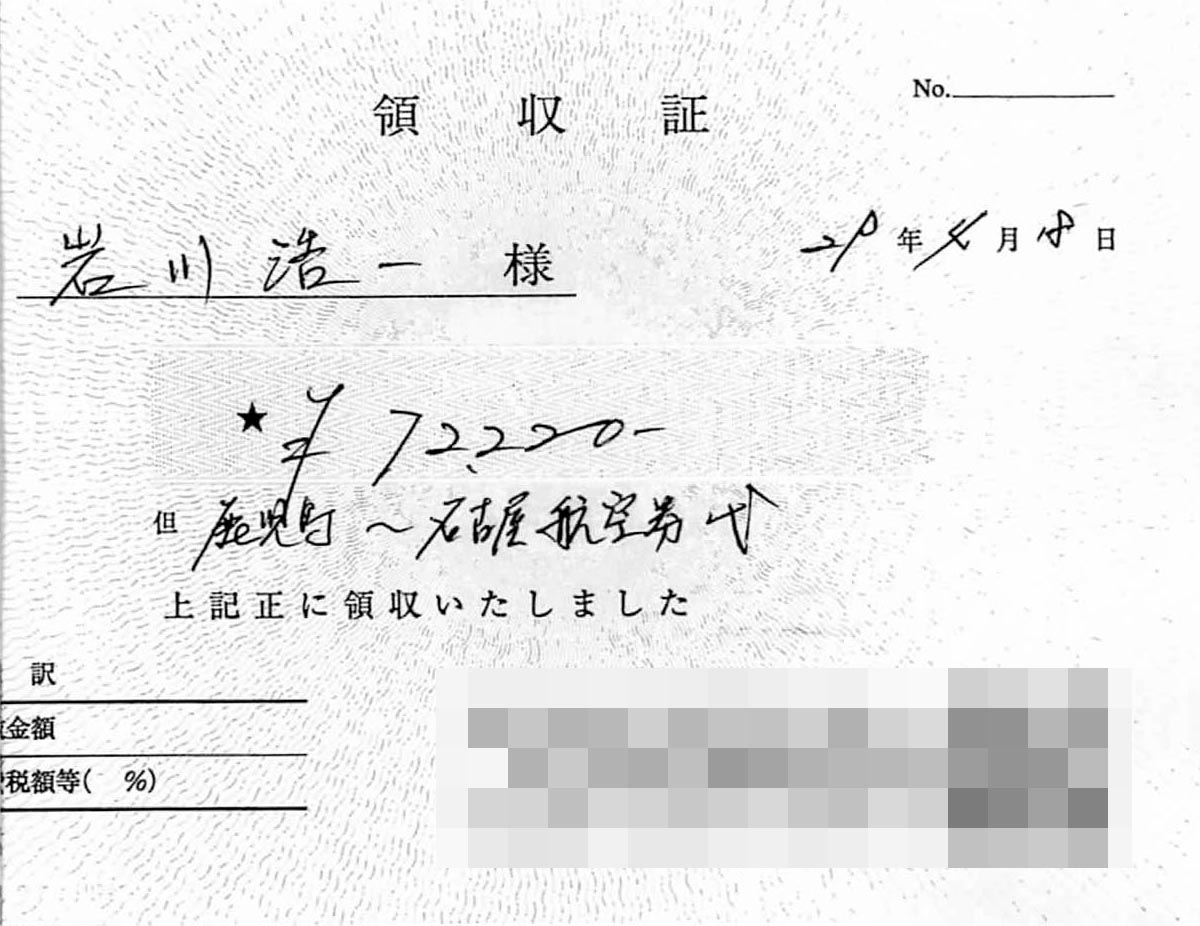 領収証
No.
29年4月18日
岩川浩一 様
★ ¥72,220-
但 鹿児島〜名古屋航空券代
上記正に領収いたしました
訳
金額
税額等( %)